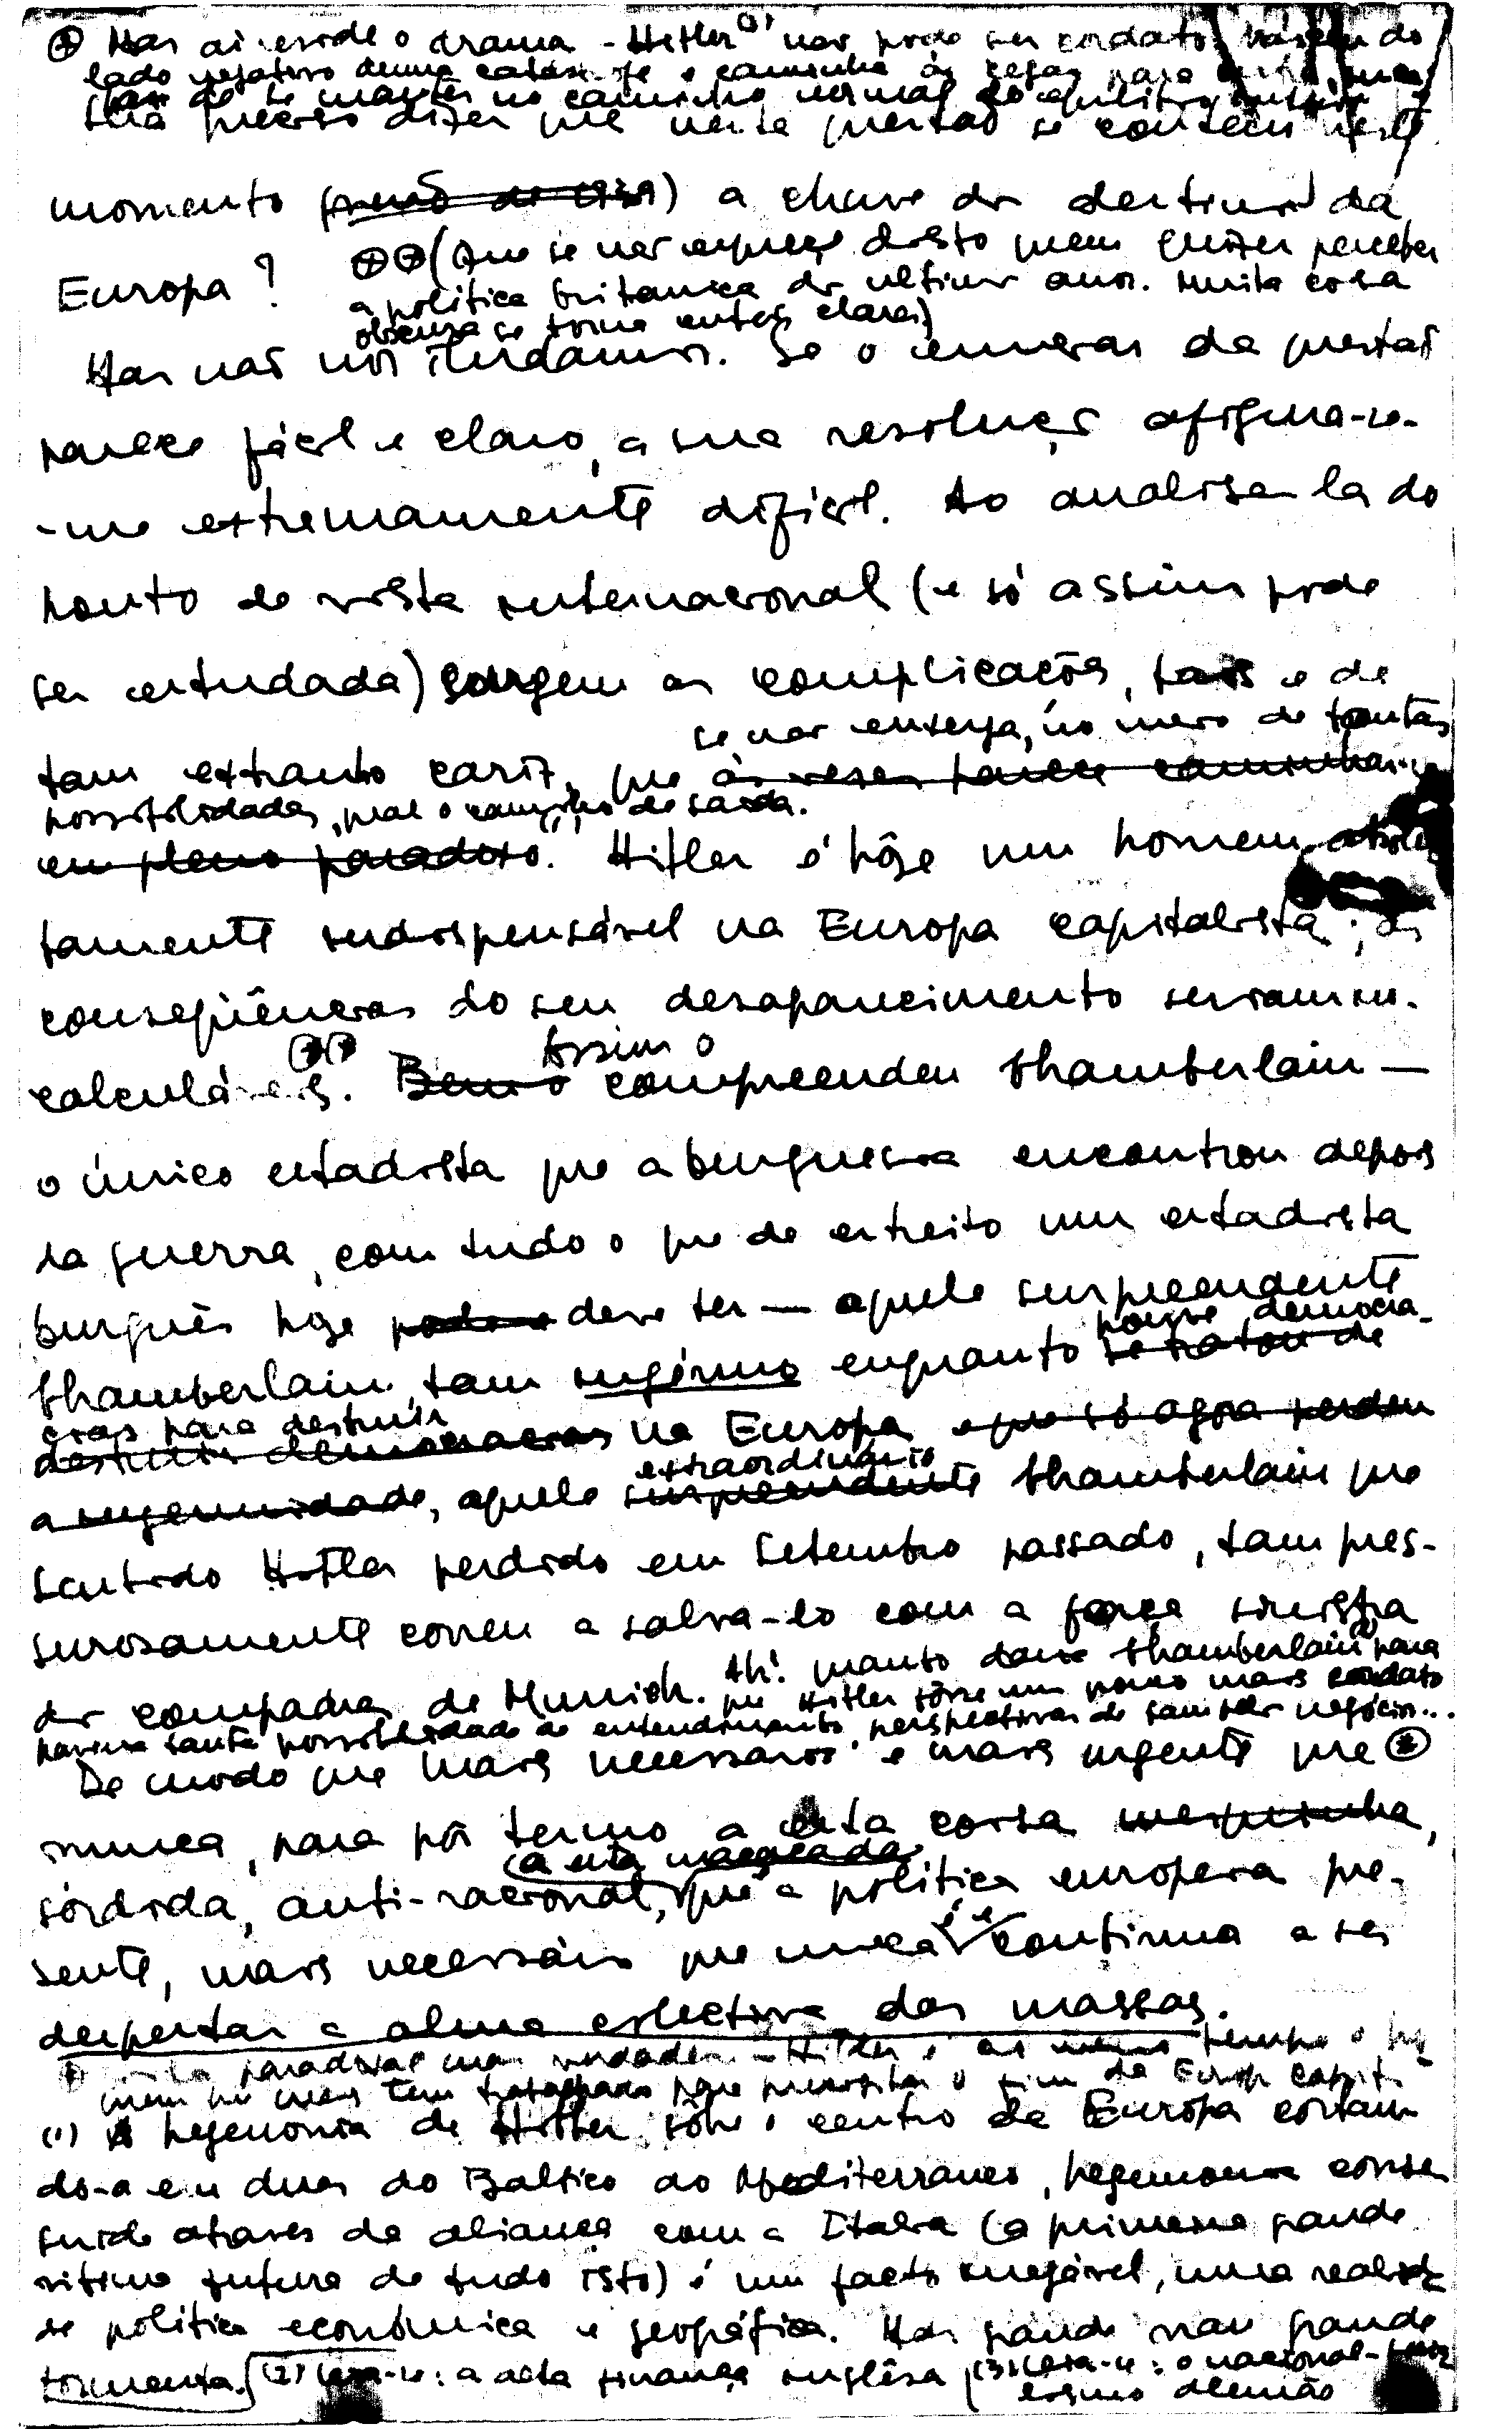 ⊕ Mas aí reside o drama - Hitler (3) não pode ser cordato,
lado negativo duma catástrofe e caminha às cegas para
de se manter no caminho normal do equilíbrio
Será preciso dizer que nesta questão se contém neste
momento (~~Junho de 1939~~) a chave dos destinos da
Europa? ⊕⊕ (Que se não esqueça disto quem quizer perceber
a política britanica dos ultimos anos. Muita coisa
obscura se torna então clara)
Mas não nos iludamos. Se o enunciar da questão
parece fácil e claro, a sua resolução afigura-se-
-me extremamente difícil. Ao analisa-la do
ponto de vista internacional (e só assim pode
ser estudada) surgem as complicações, tais e de
se não enxerga, no meio de tantas
tam extranho cariz, que ~~às vezes parece caminhar-se~~
possibilidades, qual o caminho de saída.
~~em pleno paradoxo~~. Hitler é hoje um homem absolu
tamente indispensável na Europa capitalista; as
conseqüências do seu desaparecimento seriam in-
calculáveis. ⊕⊕ ~~Bem o~~ Assim o compreendeu Chamberlain —
o único estadista que a burguesia encontrou depois
da guerra, com tudo o que de estreito um estadista
burguês hoje ~~pode e~~ deve ter — aquele surpreendente
Chamberlain, tam ingénuo enquanto ~~se tratou de~~ houve democra-
cias para destruir
~~destruir democracias~~ na Europa ~~e que só agora perdeu~~
~~a ingenuidade~~, aquele ~~surpreendente~~ extraordinário Chamberlain que
sentindo Hitler perdido em Setembro passado, tam pres-
surosamente correu a salva-lo com a farça sinistra
dos compadres de Munich. Ah! quanto daria Chamberlain (2) para
que Hitler fôsse um pouco mais cordato
haveria tanta possibilidade de entendimento, perspectivas de tam belos negócios...
De modo que mais necessario e mais urgente que ⊕
nunca, para pôr termo a esta coisa ~~mesquinha~~,
sórdida, anti-racional, que é a política europeia pre-
sente, mais necessário que nunca é, e continua a ser
despertar a alma colectiva das massas.
paradoxal mas verdadeiro - Hitler é ao mesmo tempo o ho
mem que mais tem trabalhado para precipitar o fim da Europa capit.
(1) A hegemonia de Hitler sôbre o centro da Europa cortan
do-a em duas do Baltico ao Mediterraneo, hegemonia conse
guida atraves da aliança com a Italia (a primeira grande
vitima futura de tudo isto) é um facto inegável, uma realida
de politica económica e geográfica. Mas grande nau grande
tormenta. (2) leia-se: a alta finança inglêsa (3) leia-se: o nacional-
alemão